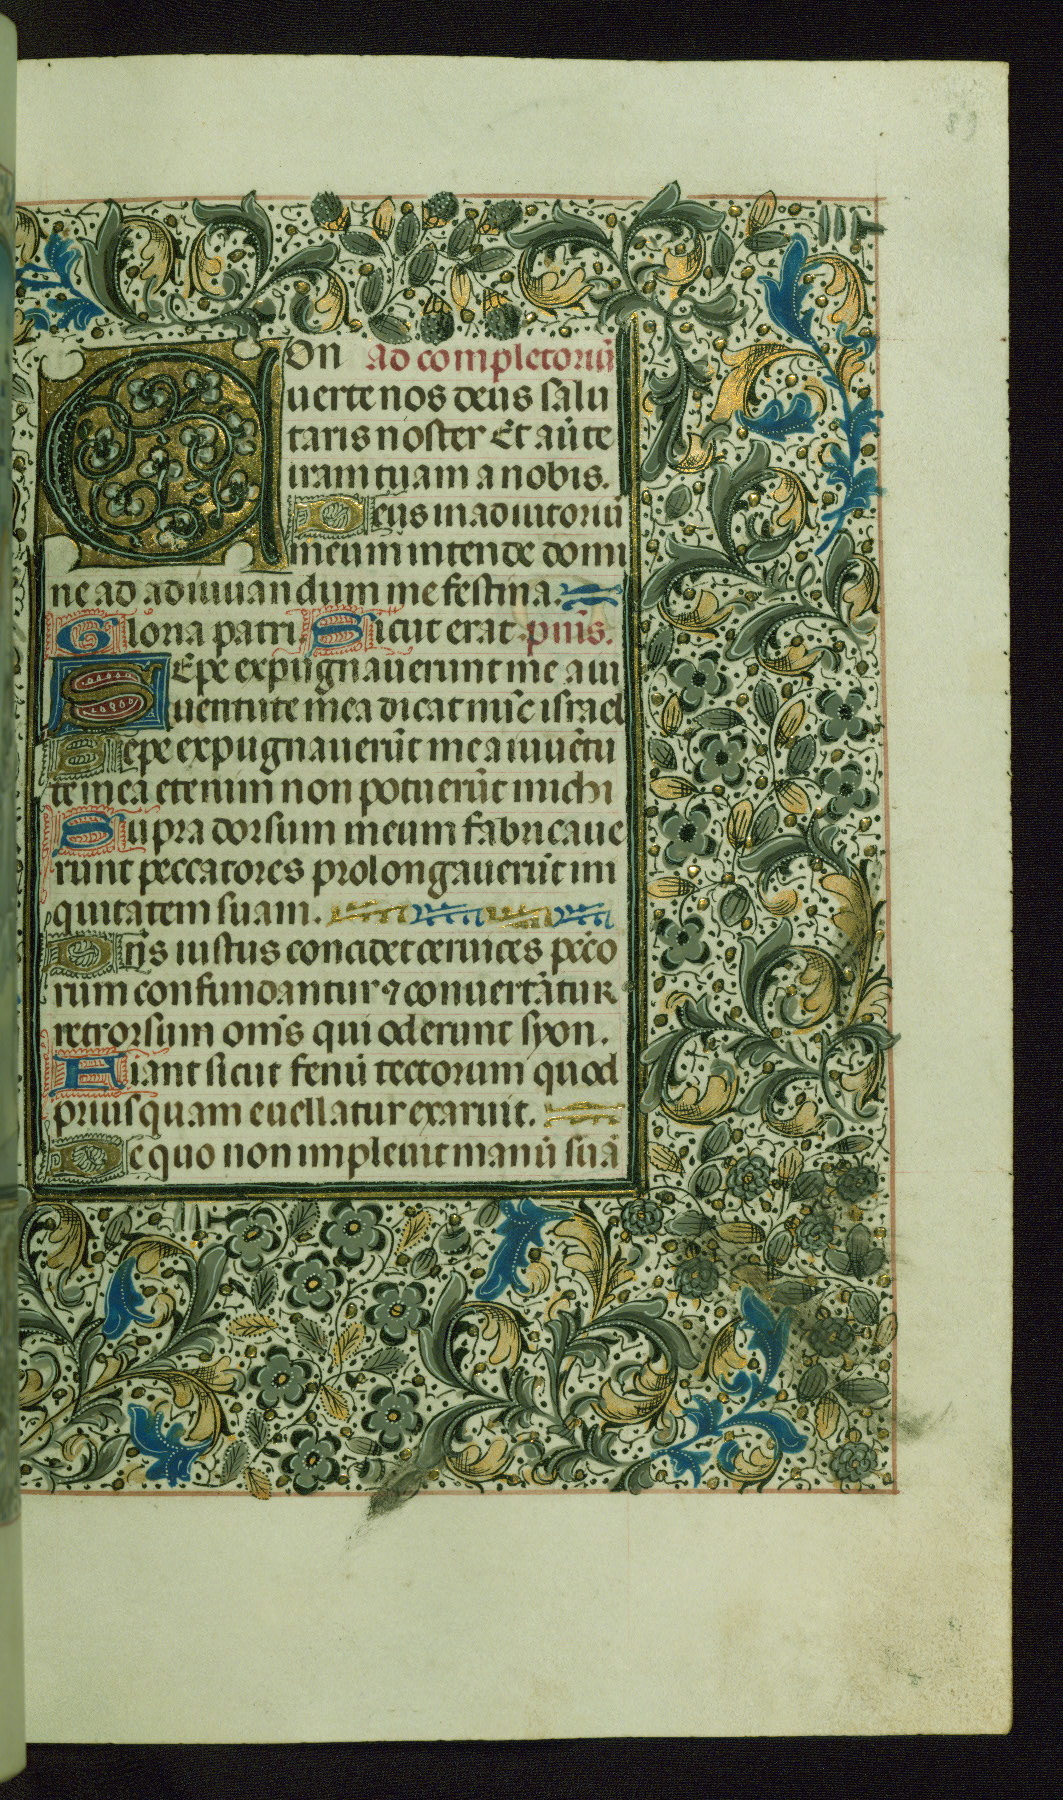 89
Con Ad completoriū
uerte nos deus salu
taris noster Et auerte
iram tuam a nobis.
Deus in adiutoriū
meum intende domi
ne ad adiuuandum me festina.
Gloria patri Sicut erat p̄us̄.
Sepe expugnauerunt me a iu
uentute mea dicat nūc israel
Sepe expugnauerūt me a iuuētu
te mea etenim non potuerūt michi
Supra dorsum meum fabricaue
runt peccatores prolongauerūt ini
quitatem suam.
Dn̄s iustus concidet ceruices pēco
rum confundantur ⁊ conuertātur
retrorsum om̄s qui oderunt syon.
Fiant sicut fenū tectorum quod
priusquam euellatur exaruit.
De quo non impleuit manū suā